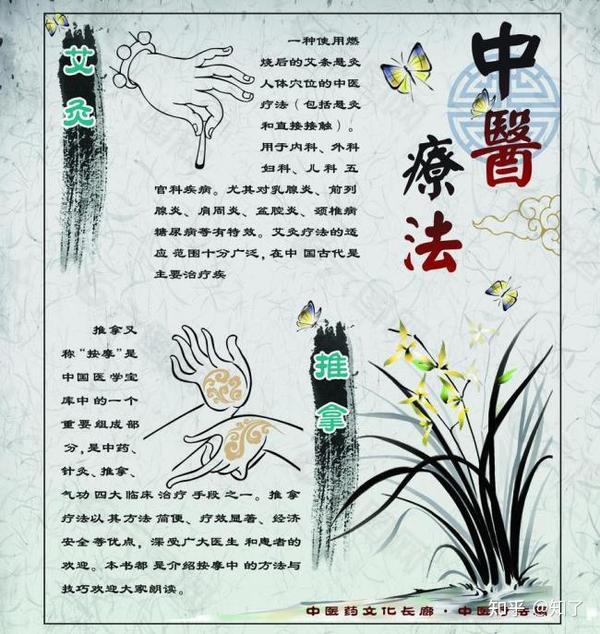 中醫
療法
艾灸
一种使用燃
烧后的艾条悬灸
人体穴位的中医
疗法（包括悬灸
和直接接触）。
用于内科、外科
妇科、儿科 五
官科疾病。尤其对乳腺炎、前列
腺炎、肩周炎、盆腔炎、颈椎病
糖尿病等有特效。艾灸疗法的适
应 范围十分广泛，在中 国古代是
主要治疗疾
推拿
推拿又
称“按摩”是
中国医学宝
库中的一个
重要组成部
分，是中药、
针灸、推拿、
气功 四大临床 治疗 手段 之一。推拿
疗法以其方法 简便、疗效显著、经济
安全等优点，深受广大医生 和患者的
欢迎。本书都 是介绍按摩中 的方法与
技巧欢迎大家朗读。
中医药文化长廊·中医疗法
知乎 @知了